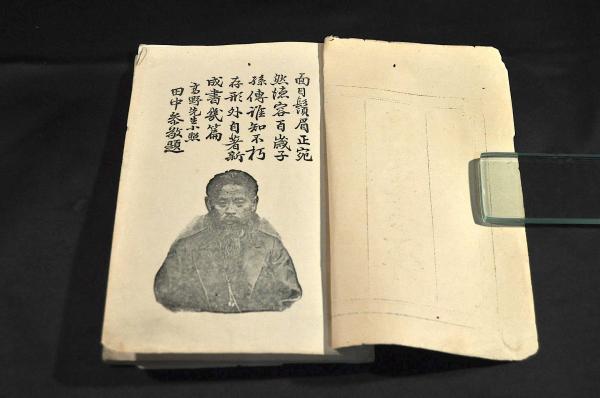 面目鬚眉正宛
然徳容百歳子
孫傳誰知不朽
存形外自著新
成書幾篇
高野先生小照
田中参敬題